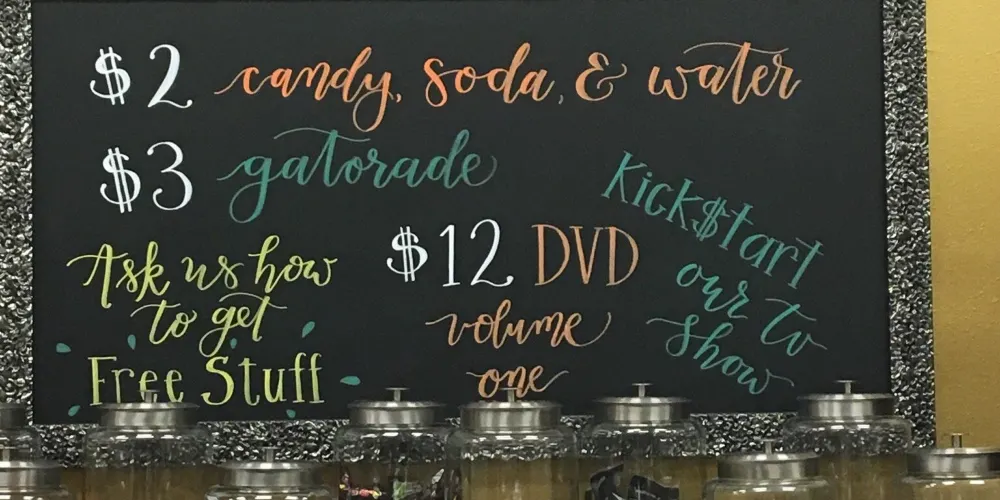 $2 candy, soda, & water
$3 gatorade
Kick$tart
our tv
show
Ask us how
to get
Free Stuff
$12 DVD
volume
one